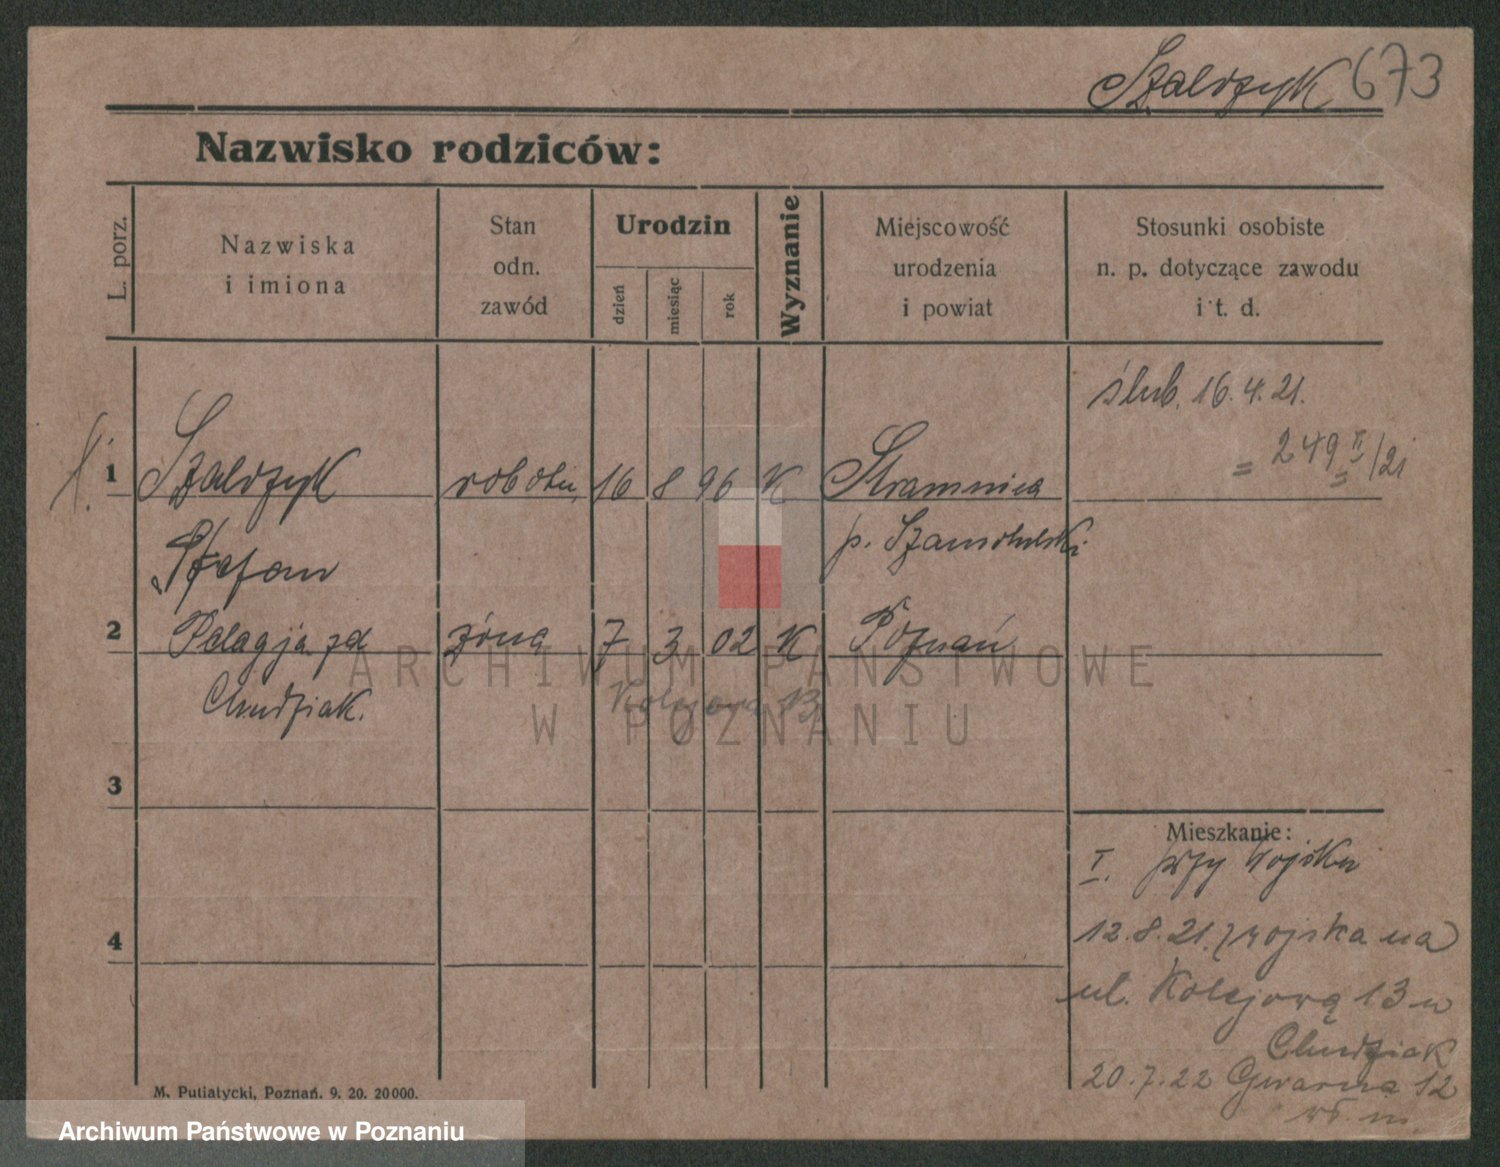 Szaldzyk 673
Nazwisko rodziców:
L. porz.
Nazwiska
i imiona
Stan
odn.
zawód
Urodzin
dzień
miesiąc
rok
Wyznanie
Miejscowość
urodzenia
i powiat
Stosunki osobiste
n. p. dotyczące zawodu
i t. d.
ślub. 16.4.21.
= 249 /21
1 Szaldzyk robotn. 16 8 96 K
Stefan p. Szamotulski
2 Pelagja zd żona 7 3 02 K Poznań
Chudziak. Kolejowa 13
3
4
Mieszkanie:
I. przy wojsku
12.8.21. z wojska na
ul. Kolejową 13 u
Chudziak
20.7.22 Gwarna 12
M. Putiatycki, Poznań. 9. 20. 20000.
ARCHIWUM PAŃSTWOWE
W POZNANIU
Archiwum Państwowe w Poznaniu